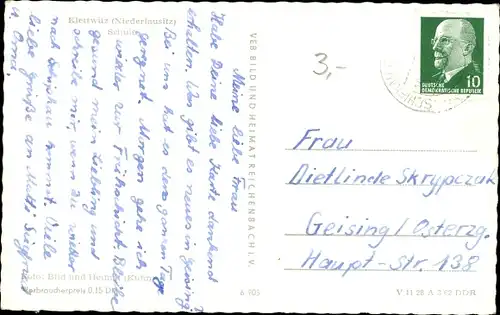 Klettwitz (Niederlausitz)
Schule
Meine liebe Frau
Habe Deine liebe Karte dankend
erhalten. Was gibt es neues in Geising?
Bei uns hat es den ganzen Tag
geregnet. Morgen gehe ich
wieder zur Frühschicht. Bleibe
gesund mein Liebling und
schreibe mir, wenn Du wieder
nach kommst. Viele
liebe Grüße an Mutti Siegfried
u. Oma.
Foto: Bild und Heimat
Verbraucherpreis 0,15 DM
VEB BILD UND HEIMAT REICHENBACH I. V.
A 905
3,-
10
DEUTSCHE
DEMOKRATISCHE REPUBLIK
Frau
Dietlinde Skrypczak
Geising/Osterzg.
Haupt-Str. 138
V 11 28 A 2/62 DDR